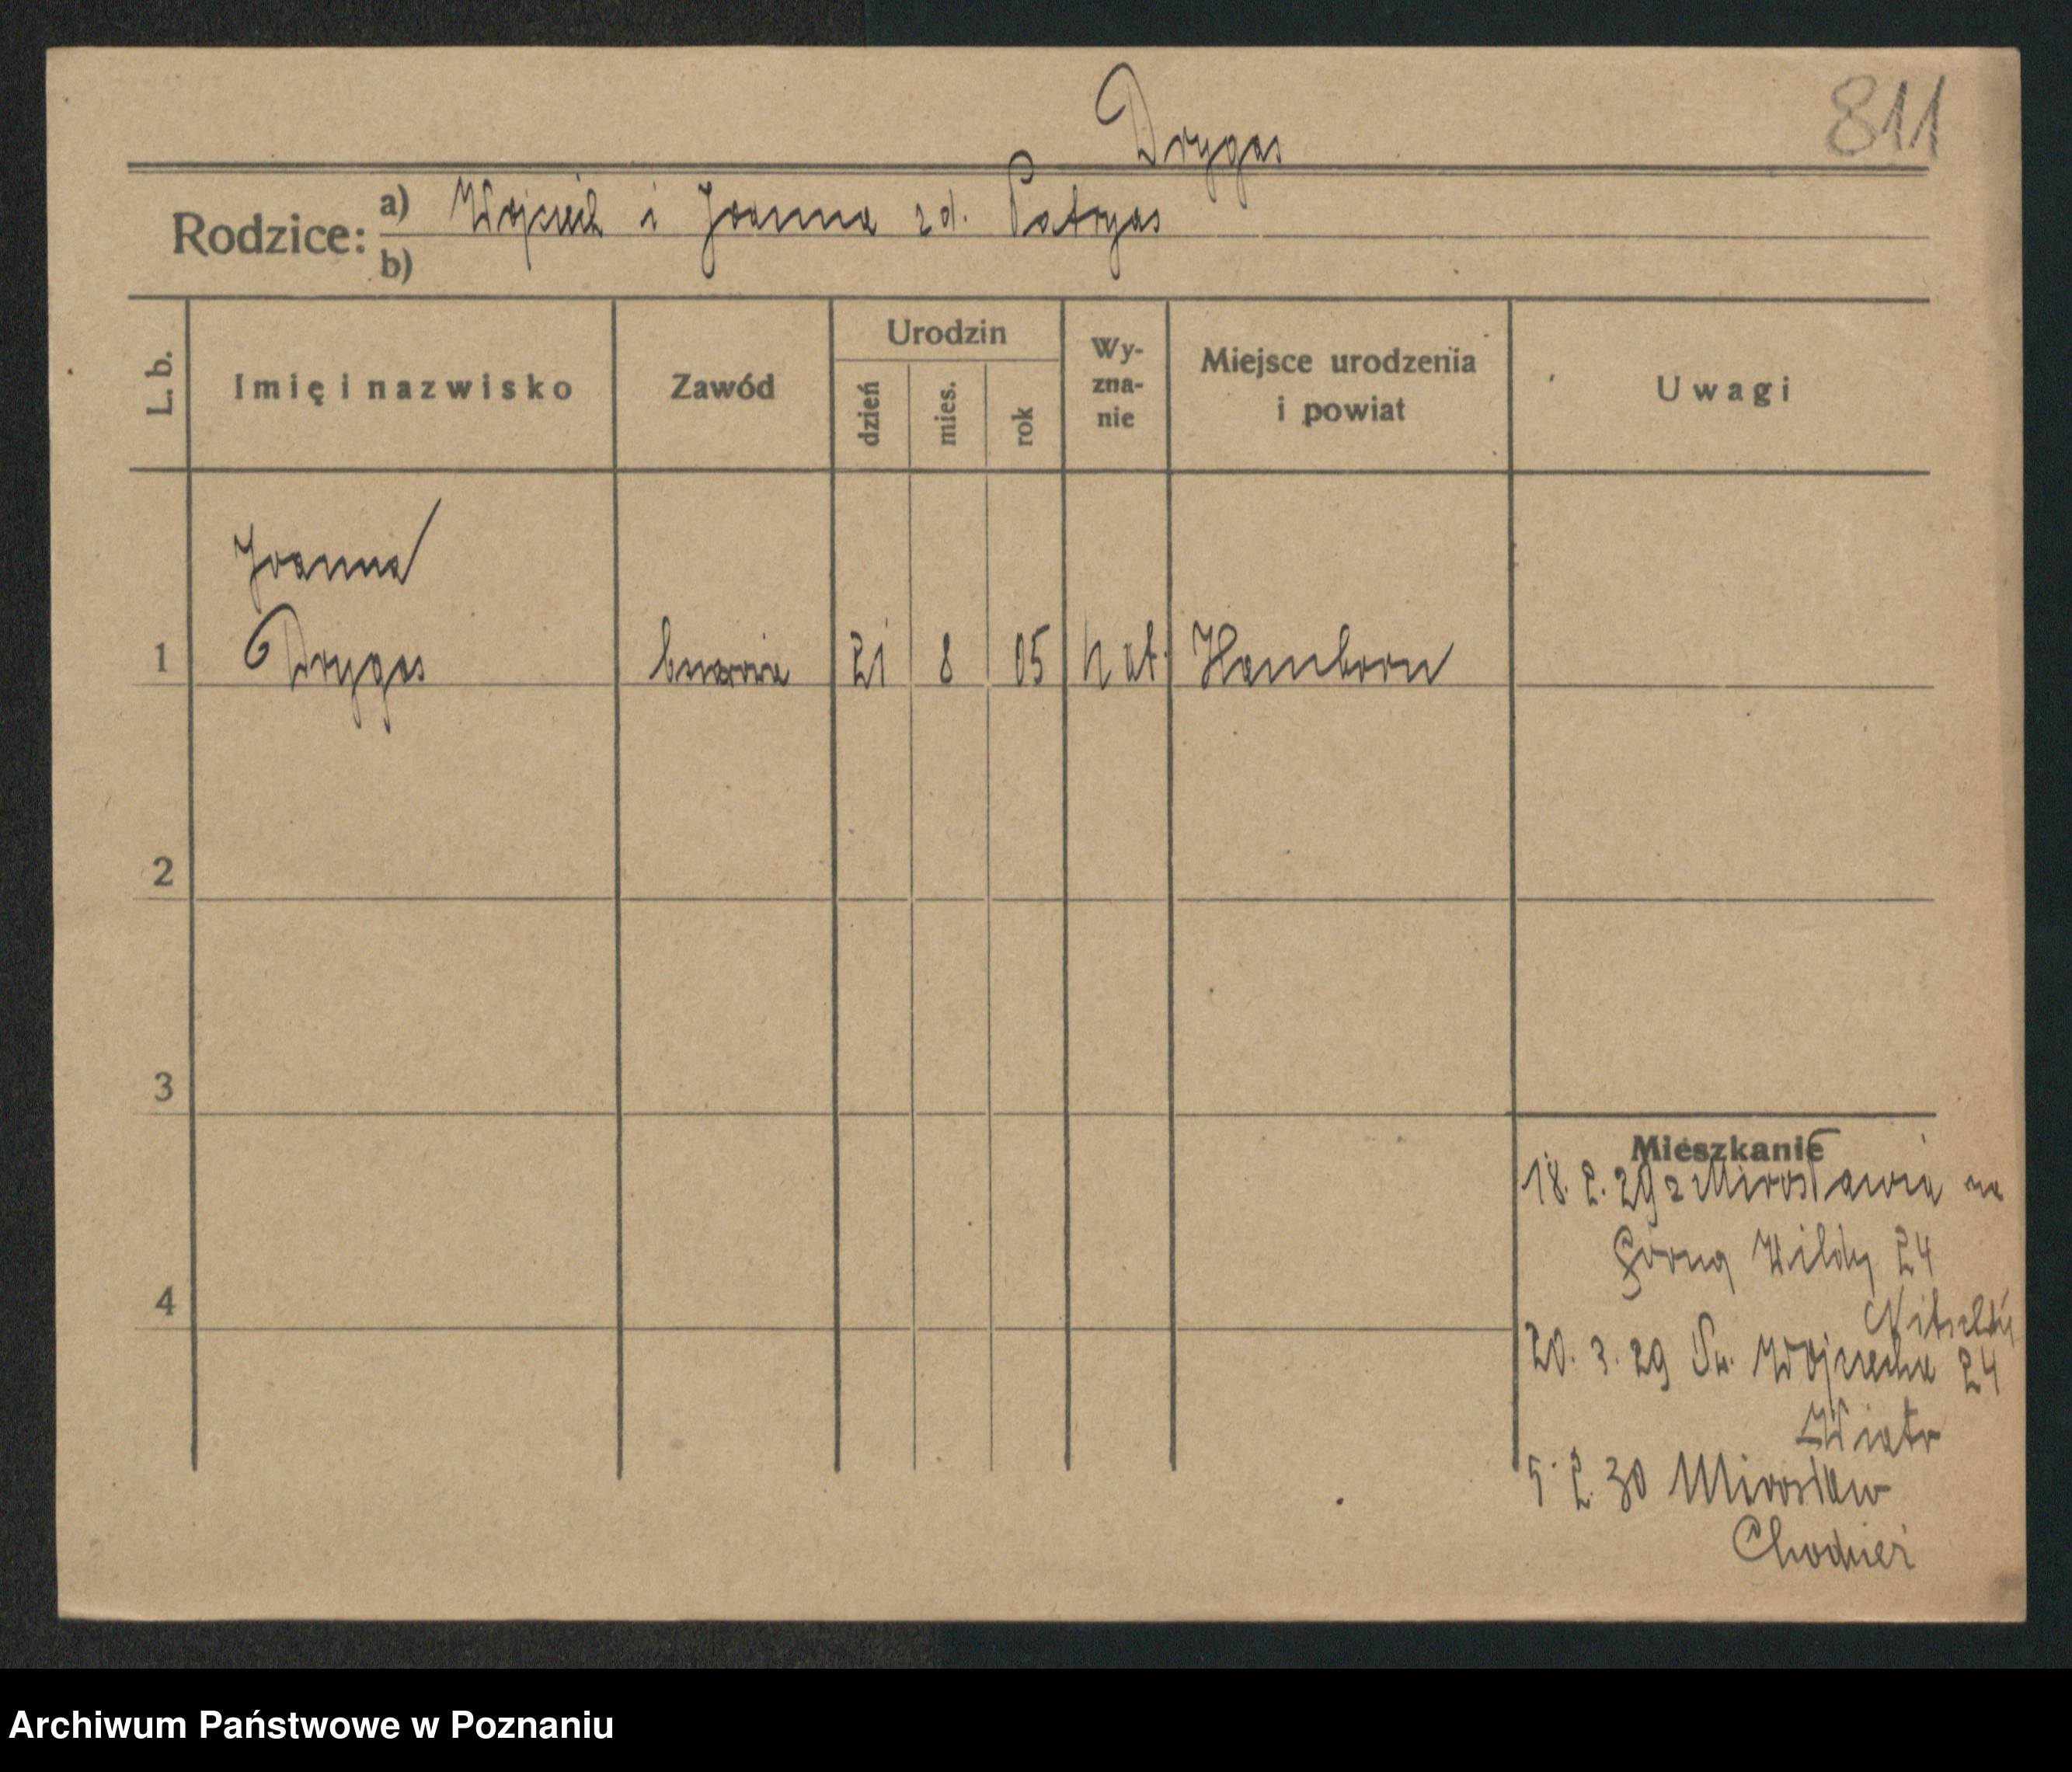 Drygas
811
Rodzice: a) Wojciech i Joanna zd. Patryas
b)
L. b.
Imię i nazwisko
Zawód
Urodzin
dzień
mies.
rok
Wy-
zna-
nie
Miejsce urodzenia
i powiat
Uwagi
Joanna
1 Drygas 21 8 05 kat. Hamborn
2
3
4
Mieszkanie
18. 2. 29 z Mirosławia na
Górną Wildy 24
20. 3. 29 Św. Wojciecha 24
Wiatr
5 2. 30 Mirosław
Chodzież
Archiwum Państwowe w Poznaniu